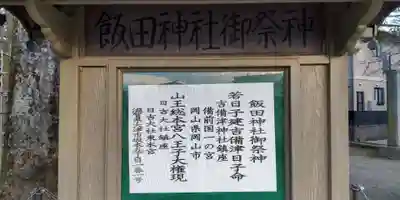 飯田神社御祭神
飯田神社御祭神
若日子建吉備津日子命
吉備津神社鎮座
備前国一の宮
岡山県岡山市
山王総本宮八王子大権現
日吉大社鎮座
日吉大社東本宮
滋賀県大津市坂本